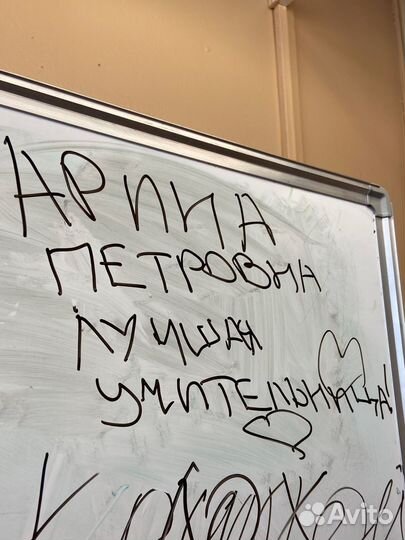 АРИНА
ПЕТРОВНА
ЛУЧШАЯ
УЧИТЕЛЬНИЦА!
Avito